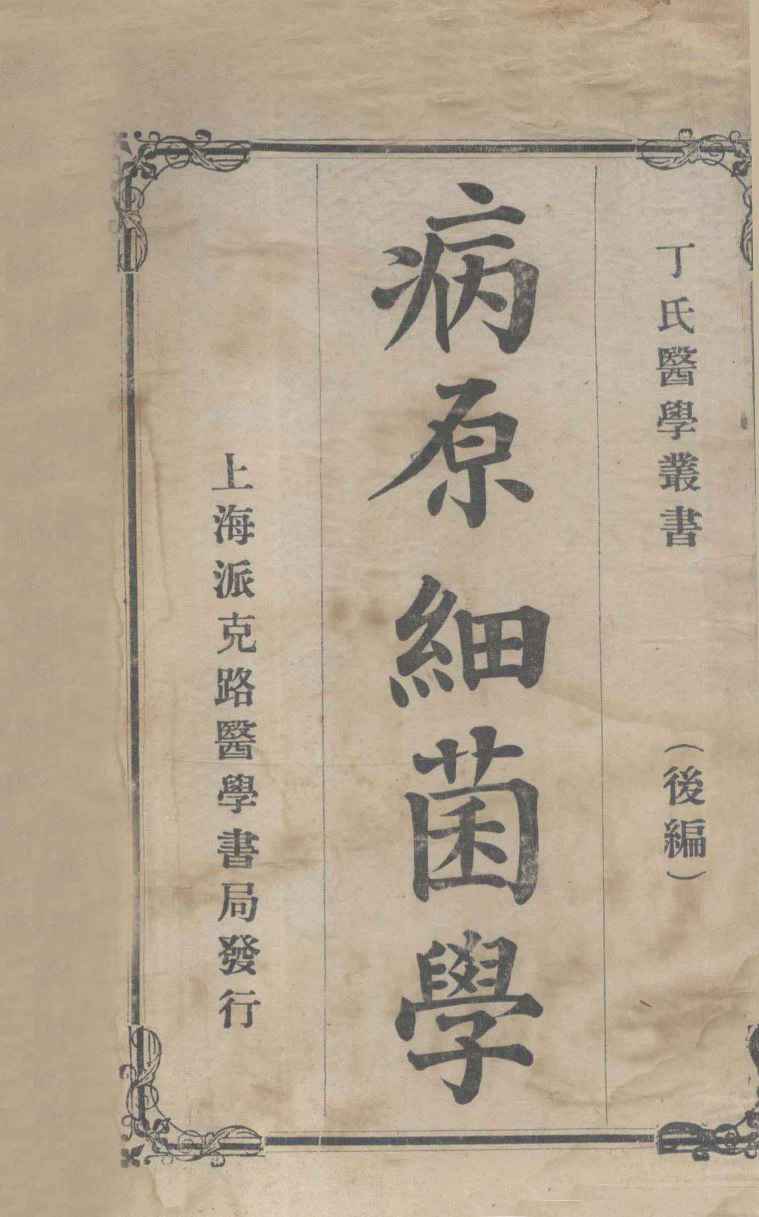 丁氏醫學叢書
(後編)
病原細菌學
上海派克路醫學書局發行